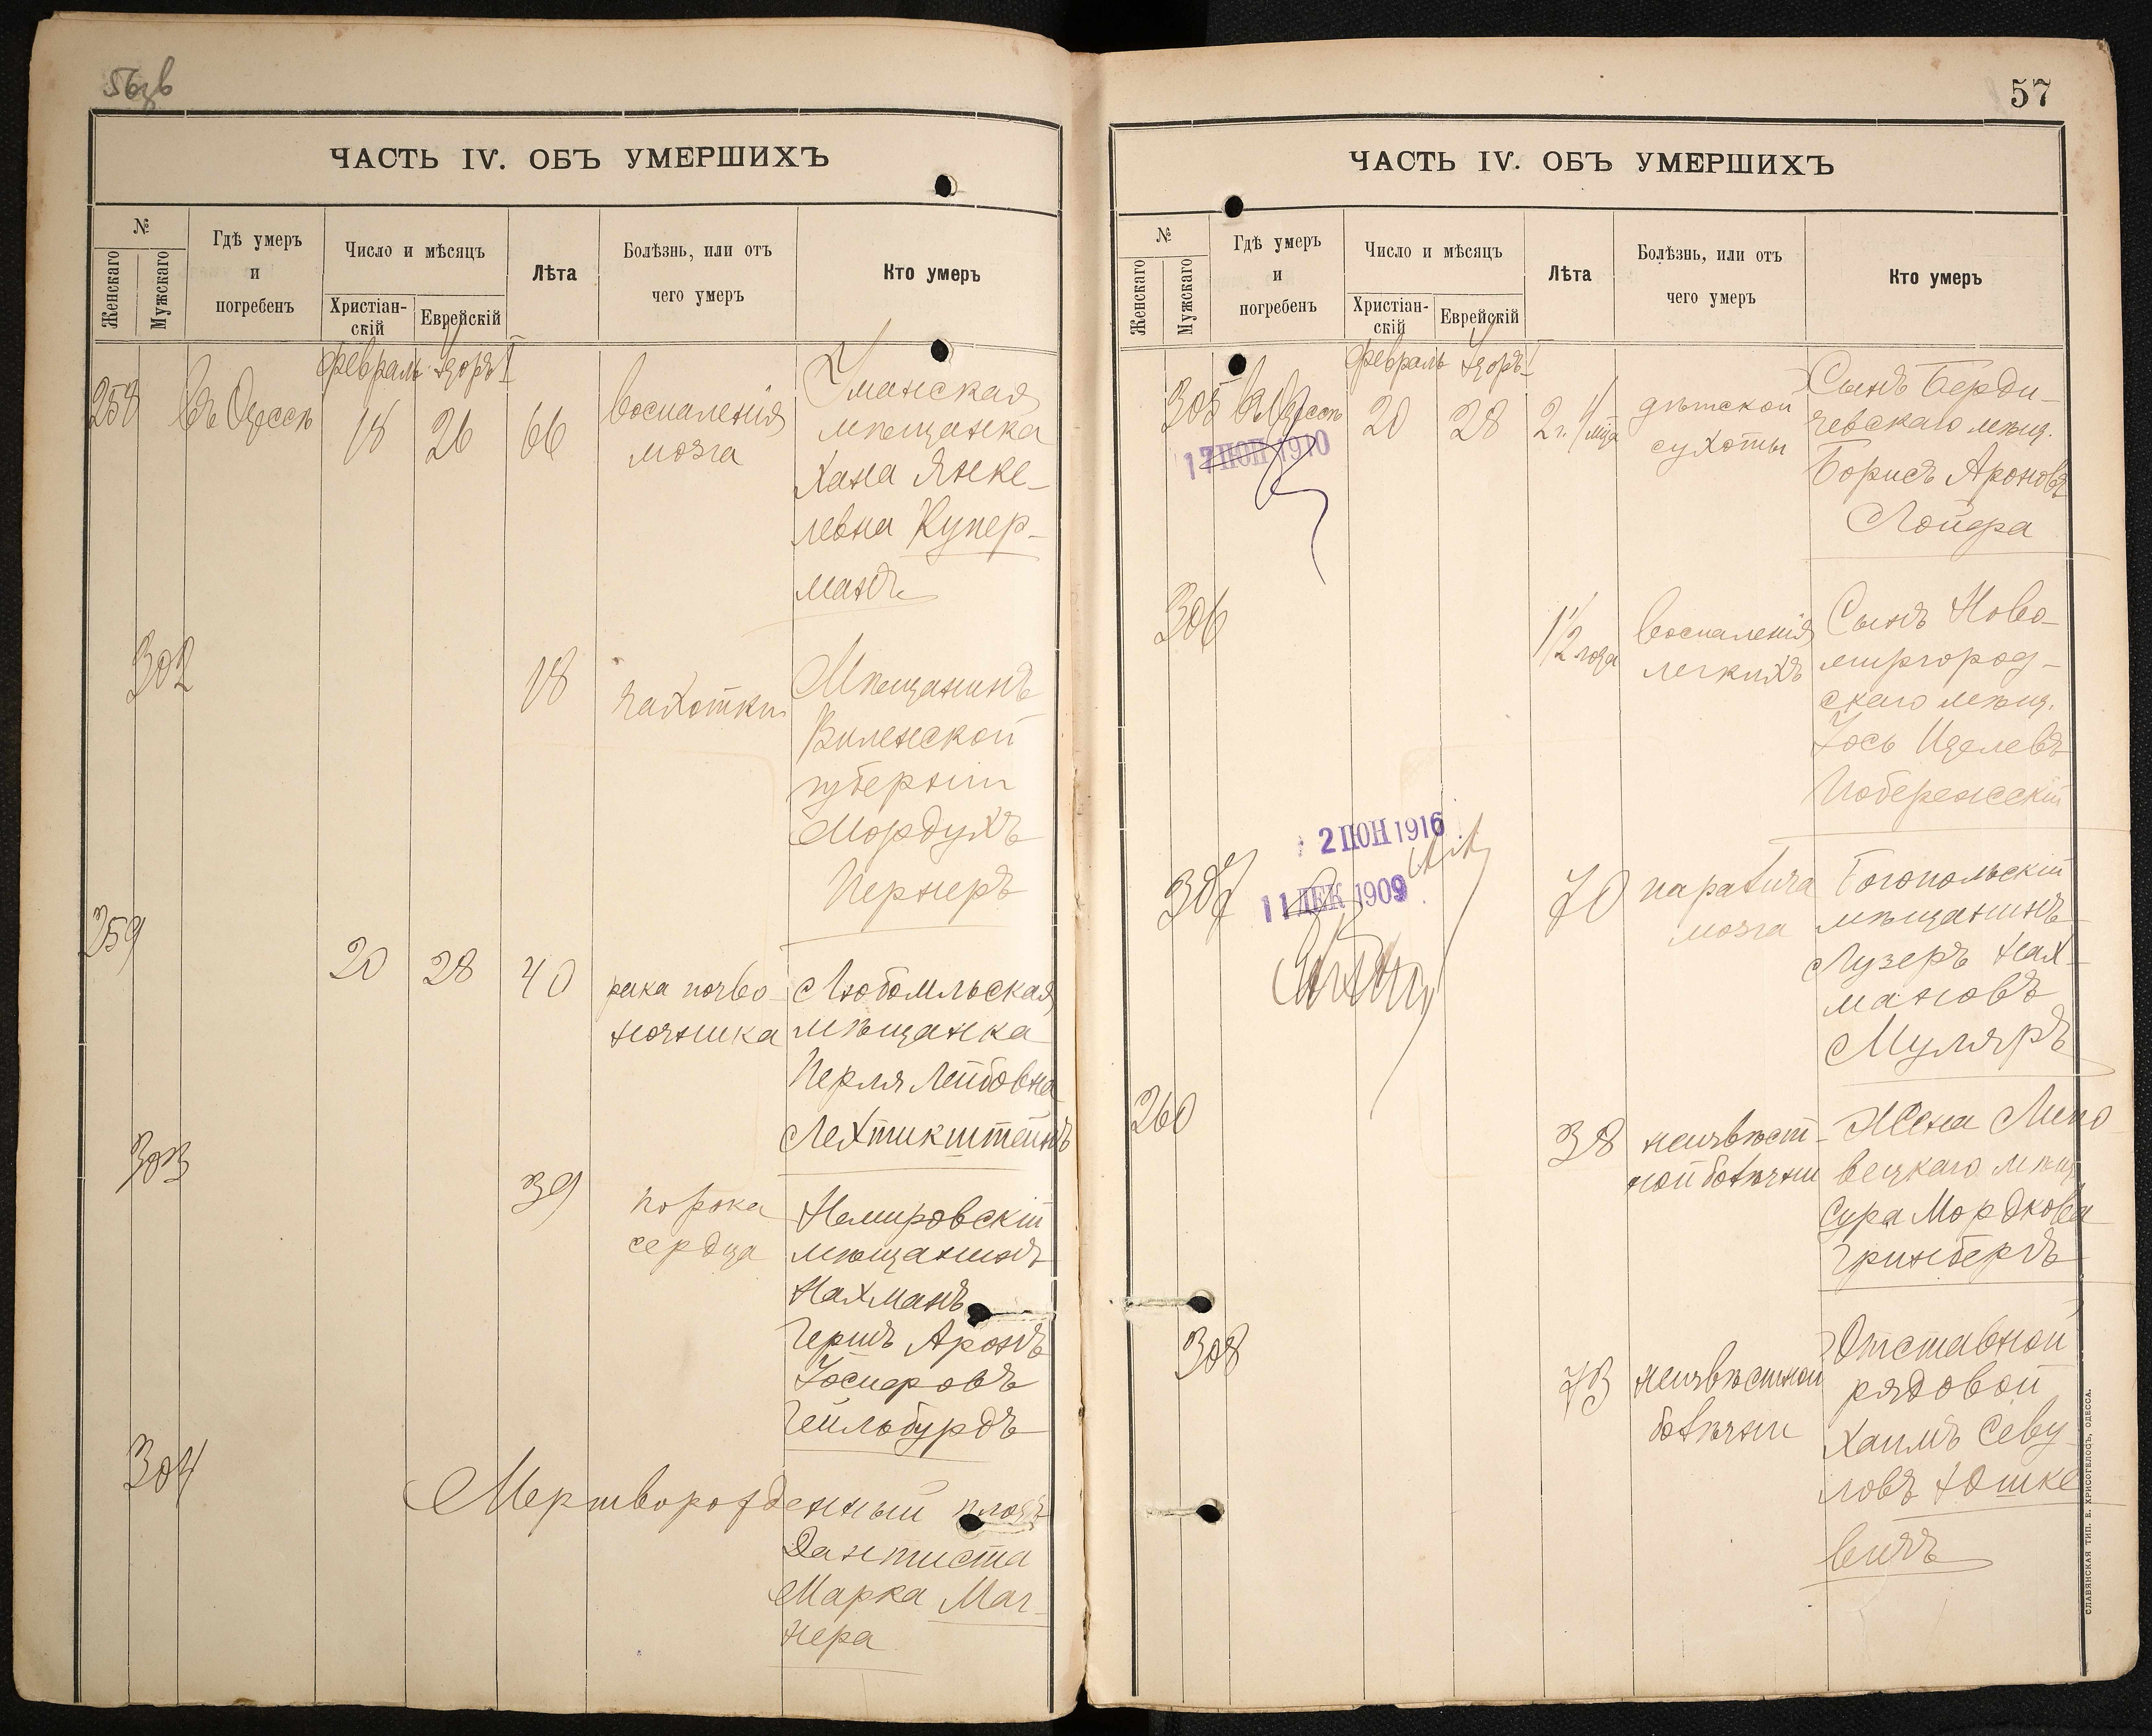 56зв
ЧАСТЬ IV. ОБЪ УМЕРШИХЪ
№
Женскаго
Мужскаго
Гдѣ умеръ
и
погребенъ
Число и мѣсяцъ
Христіан-
скій
Еврейскій
Лѣта
Болѣзнь, или отъ
чего умеръ
Кто умеръ
Февраль Адоръ I
258 Въ Одессѣ 18 26 66
воспаленія
мозга
Уманская
мѣщанка
Хана Янке-
левна Купер-
манъ
302 18 чахотки
Мѣщанинъ
Виленской
губерніи
Мордухъ
Пернеръ
259 20 28 40
рака позво-
ночника
Любомльская
мѣщанка
Перля Лейбовна
Лехтикштейнъ
303 39
порока
сердца
Немировскій
мѣщанинъ
Нахманъ
Гершъ Аронъ
Іосифовъ
Гейльбурдъ
304 Мертворожденный плодъ
Дантиста
Марка Маг-
нера
57
ЧАСТЬ IV. ОБЪ УМЕРШИХЪ
№
Женскаго
Мужскаго
Гдѣ умеръ
и
погребенъ
Число и мѣсяцъ
Христіан-
скій
Еврейскій
Лѣта
Болѣзнь, или отъ
чего умеръ
Кто умеръ
Февраль Адоръ I
305 Въ Одессѣ 20 28 2 г. 4 мца
17 ІЮН 1910
дѣтской
сухоты
Сынъ Берди-
чевскаго мѣщ.
Борисъ Ароновъ
Лойфа
306 1 1/2 года
воспаленія
легкихъ
Сынъ Ново-
миргород-
скаго мѣщ.
Іось Иделевъ
Побережскій
2 ІЮН 1916
11 ДЕК 1909
307 70
паралича
мозга
Богопольскій
мѣщанинъ
Лузеръ Нах-
мановъ
Муляръ
260 38
неизвѣст-
ной болѣзни
Жена Липо-
вецкаго мѣщ.
Сура Мордкова
Гринбергъ
308 73
неизвѣстной
болѣзни
Отставной
рядовой
Хаимъ Севу-
ловъ Юшке
вичъ
СЛАВЯНСКАЯ ТИП. Е. ХРИСОГЕЛОСЪ, ОДЕССА.